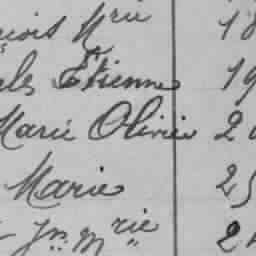 çois Mrie 18
les Etienne 19
Marie Olivier 2
Marie 25
Jn Mrie 2